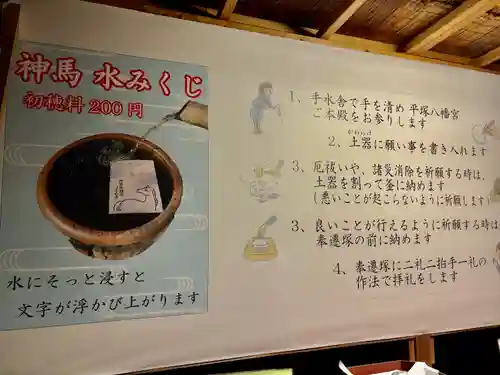 神馬 水みくじ
初穂料 200 円
水にそっと浸すと
文字が浮かび上がります
1、手水舎で手を清め 平塚八幡宮
ご本殿をお参りします
2、土器に願い事を書き入れます
3、厄祓いや、諸災消除を祈願する時は、
土器を割って釜に納めます
(悪いことが起こらないように祈願します)
3、良いことが行えるように祈願する時は
奉遷塚の前に納めます
4、奉遷塚に二礼二拍手一礼の
作法で拝礼をします